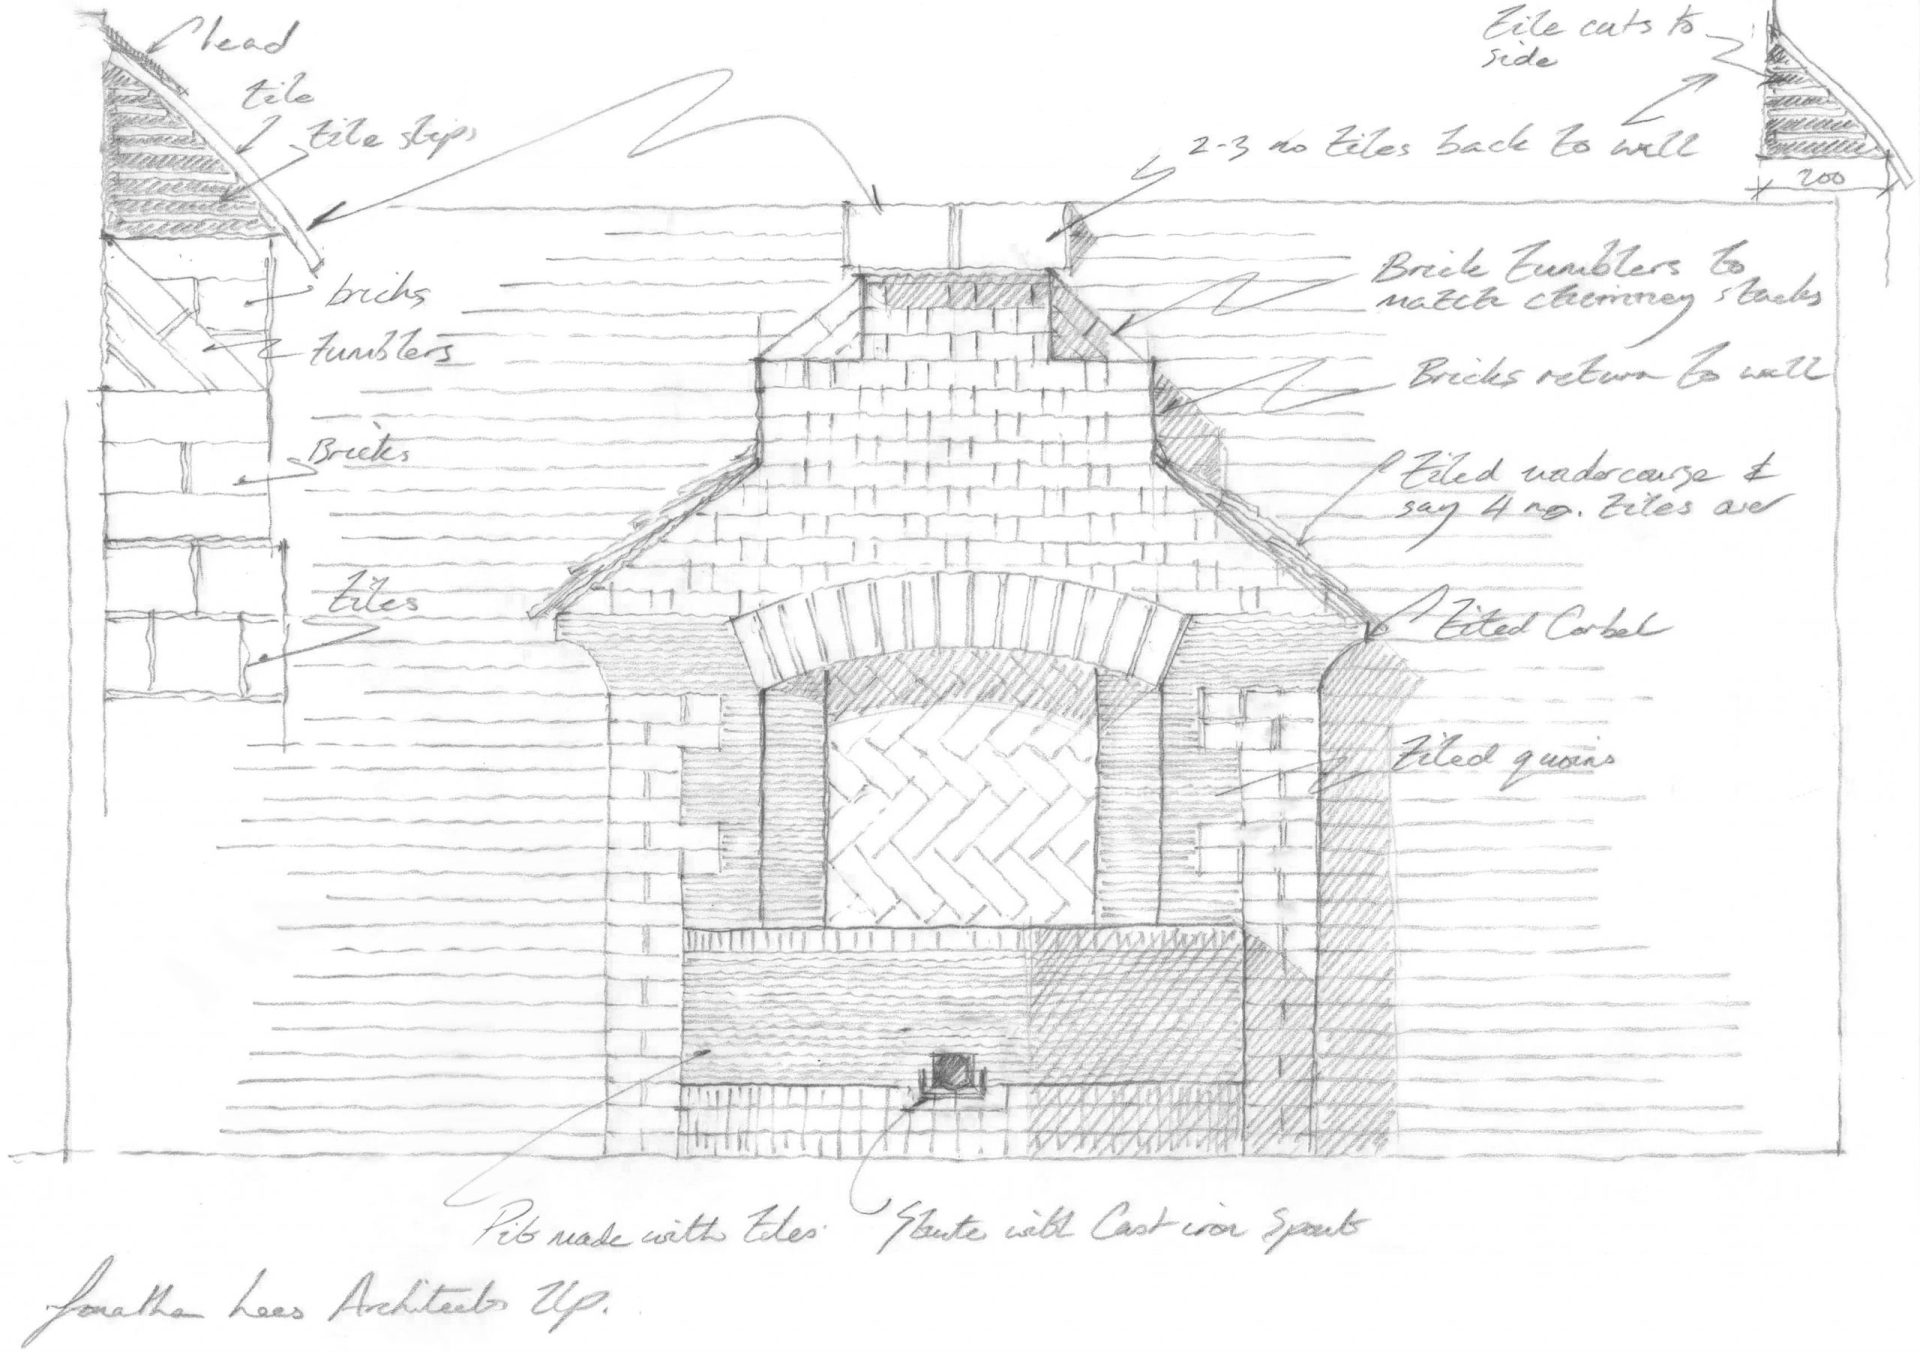 lead
tile
tile slips
bricks
tumblers
Bricks
tiles
tile cuts to
side
2-3 no tiles back to wall
200
Brick tumblers to
match chimney stacks
Bricks return to wall
Tiled undercourse &
say 4 no. tiles over
Tiled Corbel
Tiled quoins
Pit made with tiles
with Cast iron Spout
Jonathan Lees Architects llp.